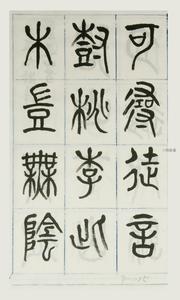 可尋徒言
樹桃李此
木豈無陰